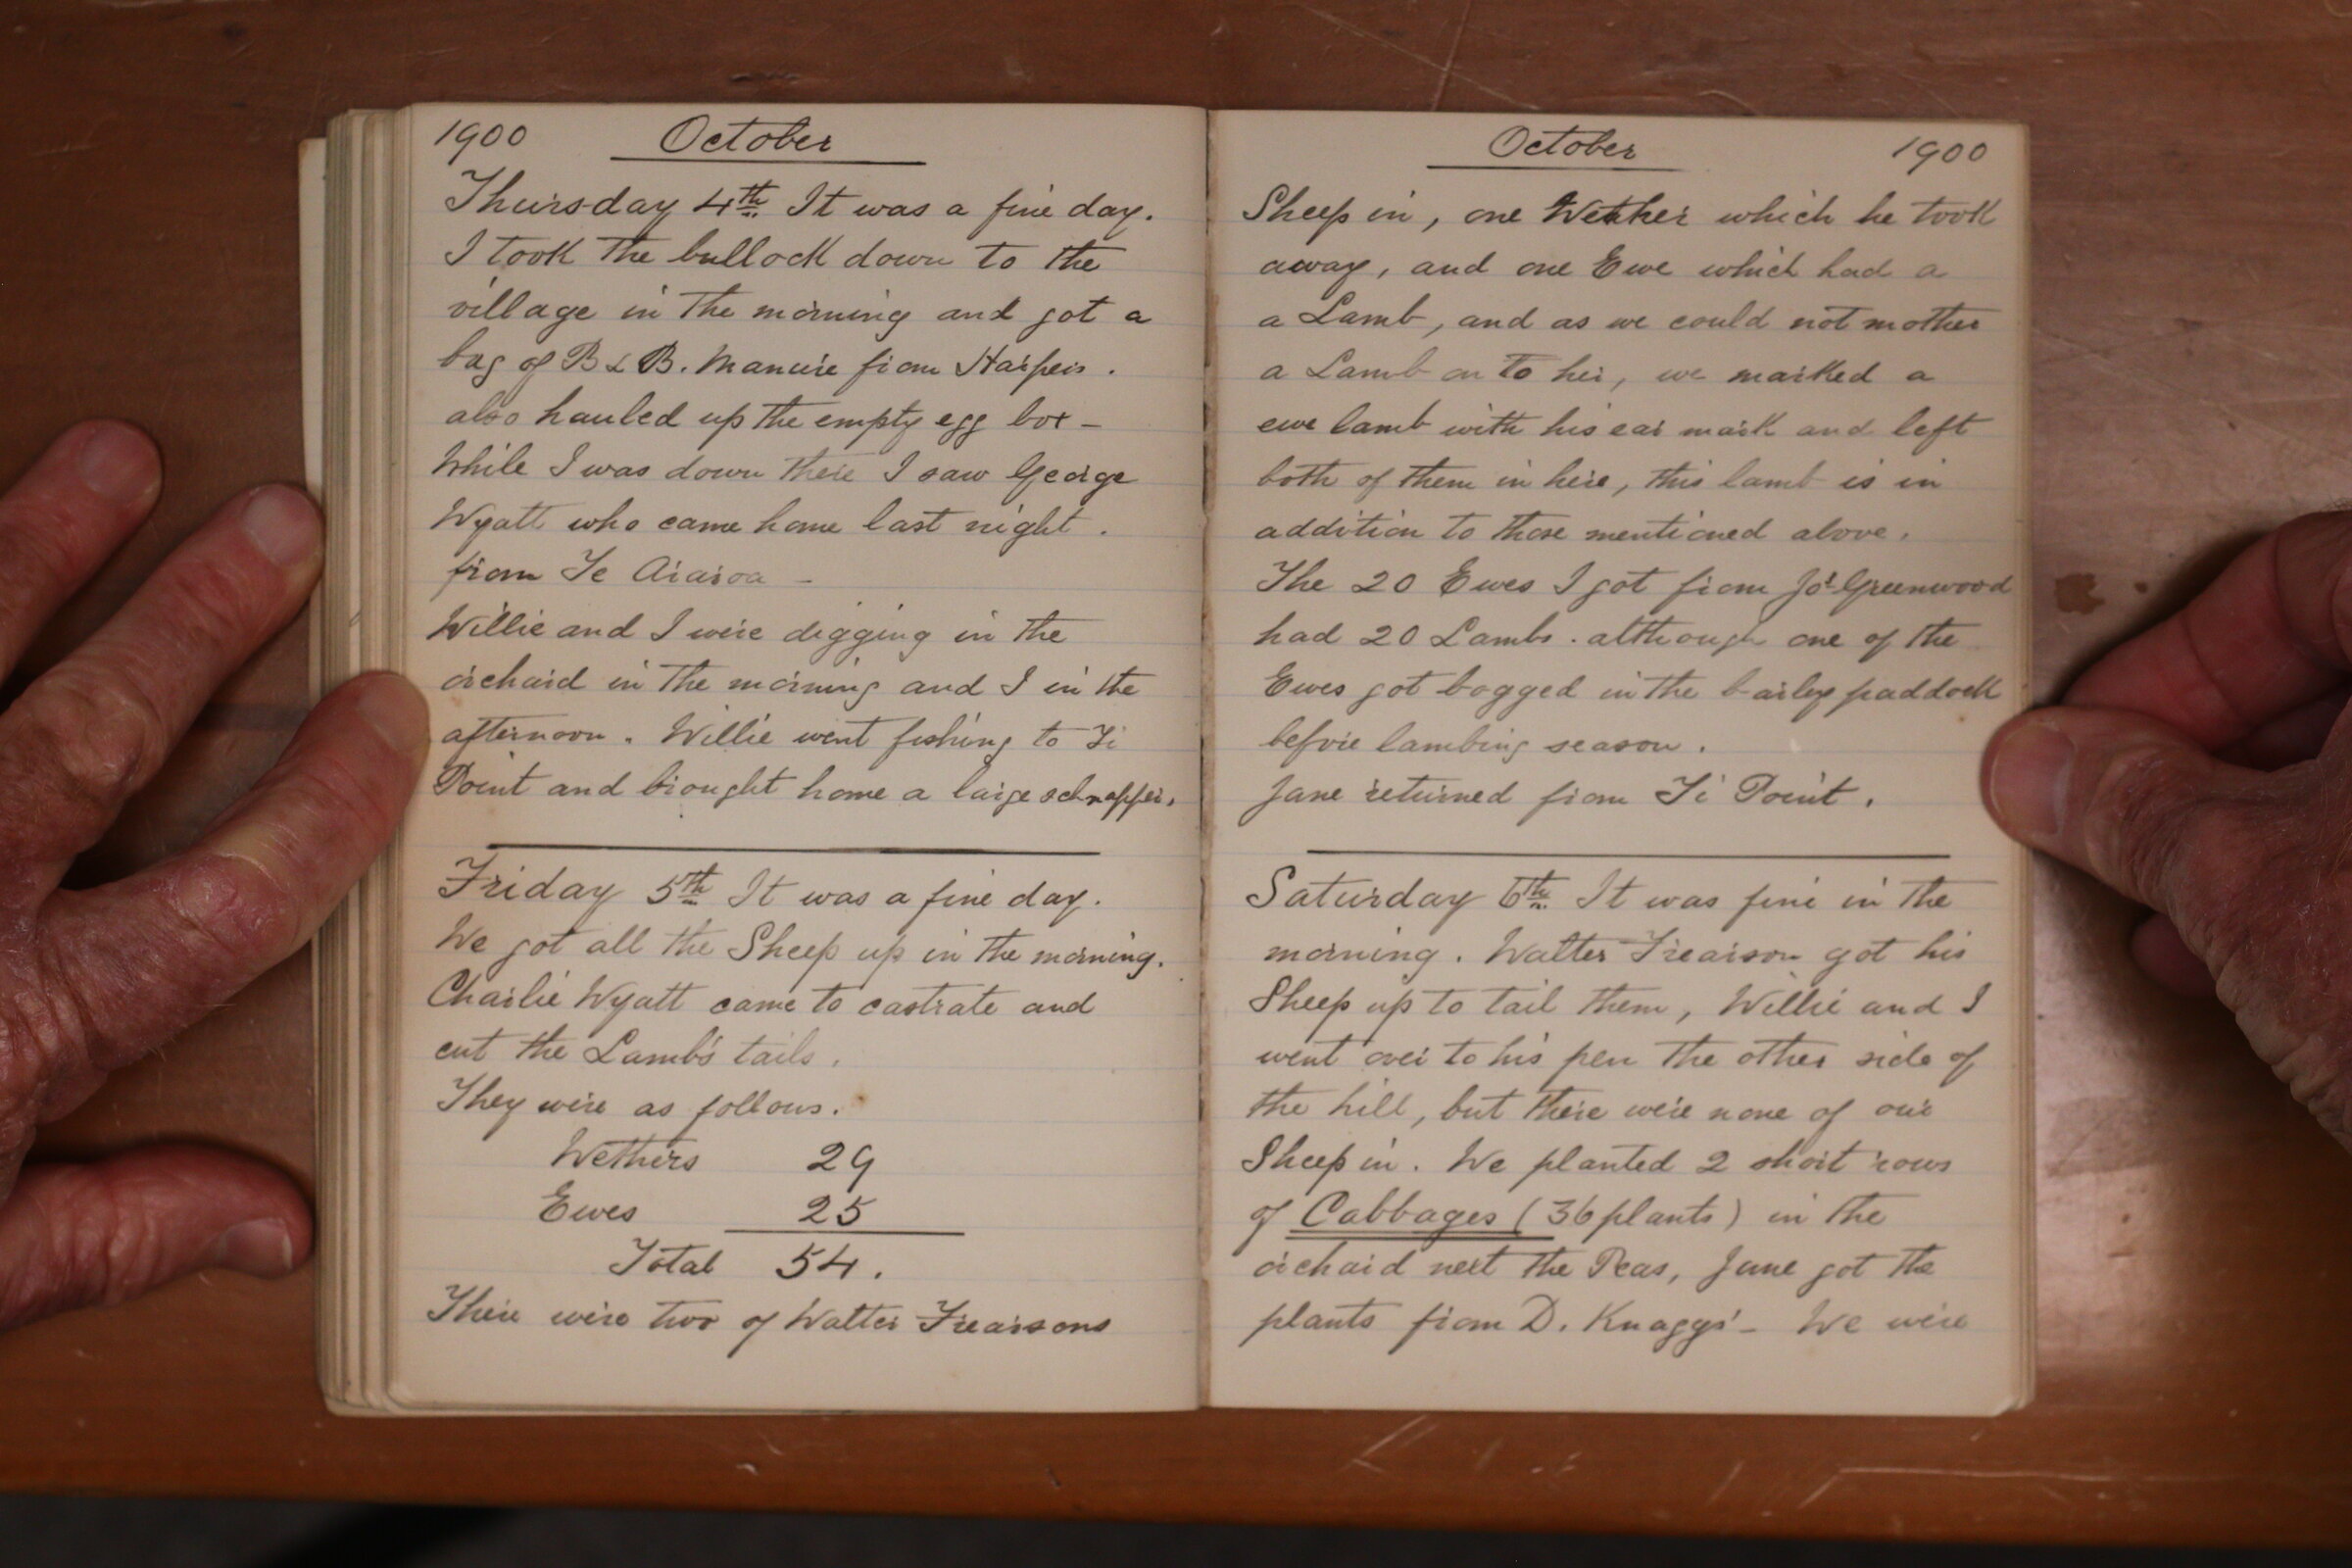 1900 October
Thursday 4th. It was a fine day.
I took the bullock down to the
village in the morning and got a
bag of B & B. Manure from Harpers.
also hauled up the empty egg box -
While I was down there I saw George
Wyatt who came home last night.
from Te Araroa -
Willie and I were digging in the
orchard in the morning and I in the
afternoon. Willie went fishing to Ti
Point and brought home a large schnapper.
Friday 5th It was a fine day.
We got all the Sheep up in the morning.
Charlie Wyatt came to castrate and
cut the Lamb's tails.
They were as follows.
Wethers 29
Ewes 25
Total 54.
There were two of Walter Frearsons
October 1900
Sheep in, one Wether which he took
away, and one Ewe which had a
a Lamb, and as we could not mother
a Lamb on to her, we marked a
ewe lamb with his ear mark and left
both of them in here, this lamb is in
addition to those mentioned above.
The 20 Ewes I got from Jos Greenwood
had 20 Lambs. although one of the
Ewes got bogged in the barley paddock
before lambing season.
Jane returned from Ti Point.
Saturday 6th. It was fine in the
morning. Walter Frearson got his
Sheep up to tail them, Willie and I
went over to his pen the other side of
the hill, but there were none of our
Sheep in. We planted 2 short rows
of Cabbages (36 plants) in the
orchard next the Peas, Jane got the
plants from D. Knaggs' - We were